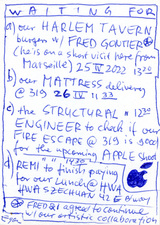 WAITING FOR
a) our HARLEM TAVERN
burger w/ FRED GONTIER
(he is on a short visit here from
Marseille) 25 IV 2022 13 20
b) our MATTRESS delivery
@ 319 26 IV 11 33
c) the STRUCTURAL " 12 30
ENGINEER to check if our
FIRE ESCAPE @ 319 is good
for the upcoming APPLE shoot
d) REMI to finish paying
for our lunch @ HWA
HWA SZECHUAN 42 E
e) FRED Q1 agree to continue
w/ our artistic collaboration